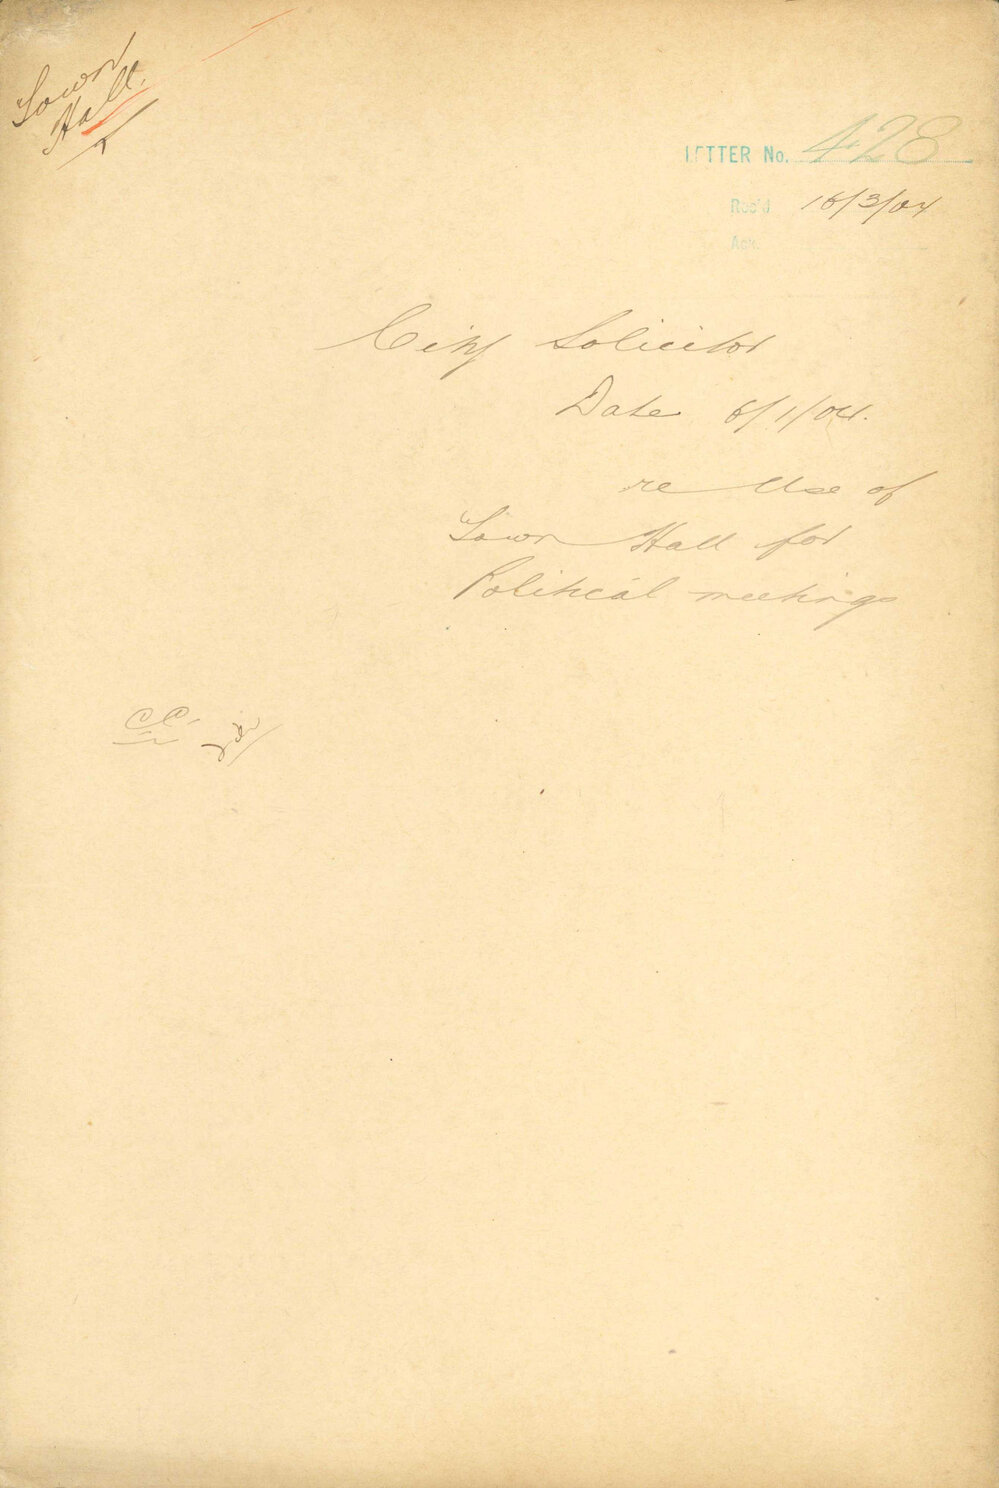 Town
Hall.
LETTER No. 428
Rec'd 16/3/04
Ack.
City Solicitor
Date 6/1/04.
re Use of
Town Hall for
Political meetings
C.C.